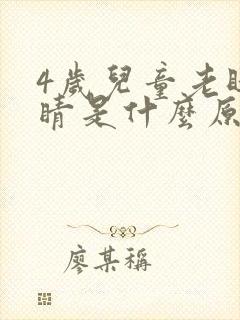 4歲兒童老
睛是什麼原
廖某稱